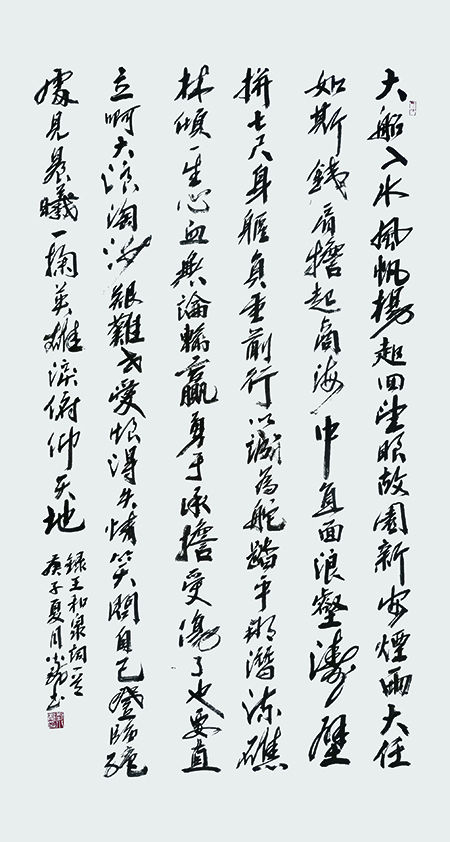 大船入水風帆揚起回望眼故園新安煙雨大任
如斯鐵肩擔起商海中直面浪壑濤壁
拼七尺身軀負重前行以誠為舵踏平潛流礁
林傾一生心血無論輸贏勇于承擔受傷了也要直
立啊大浪淘沙艱難愛恨得失情笑問自己登臨
處見晨曦一掬英雄淚俯仰天地
錄王和泉詞一首
庚子夏月书